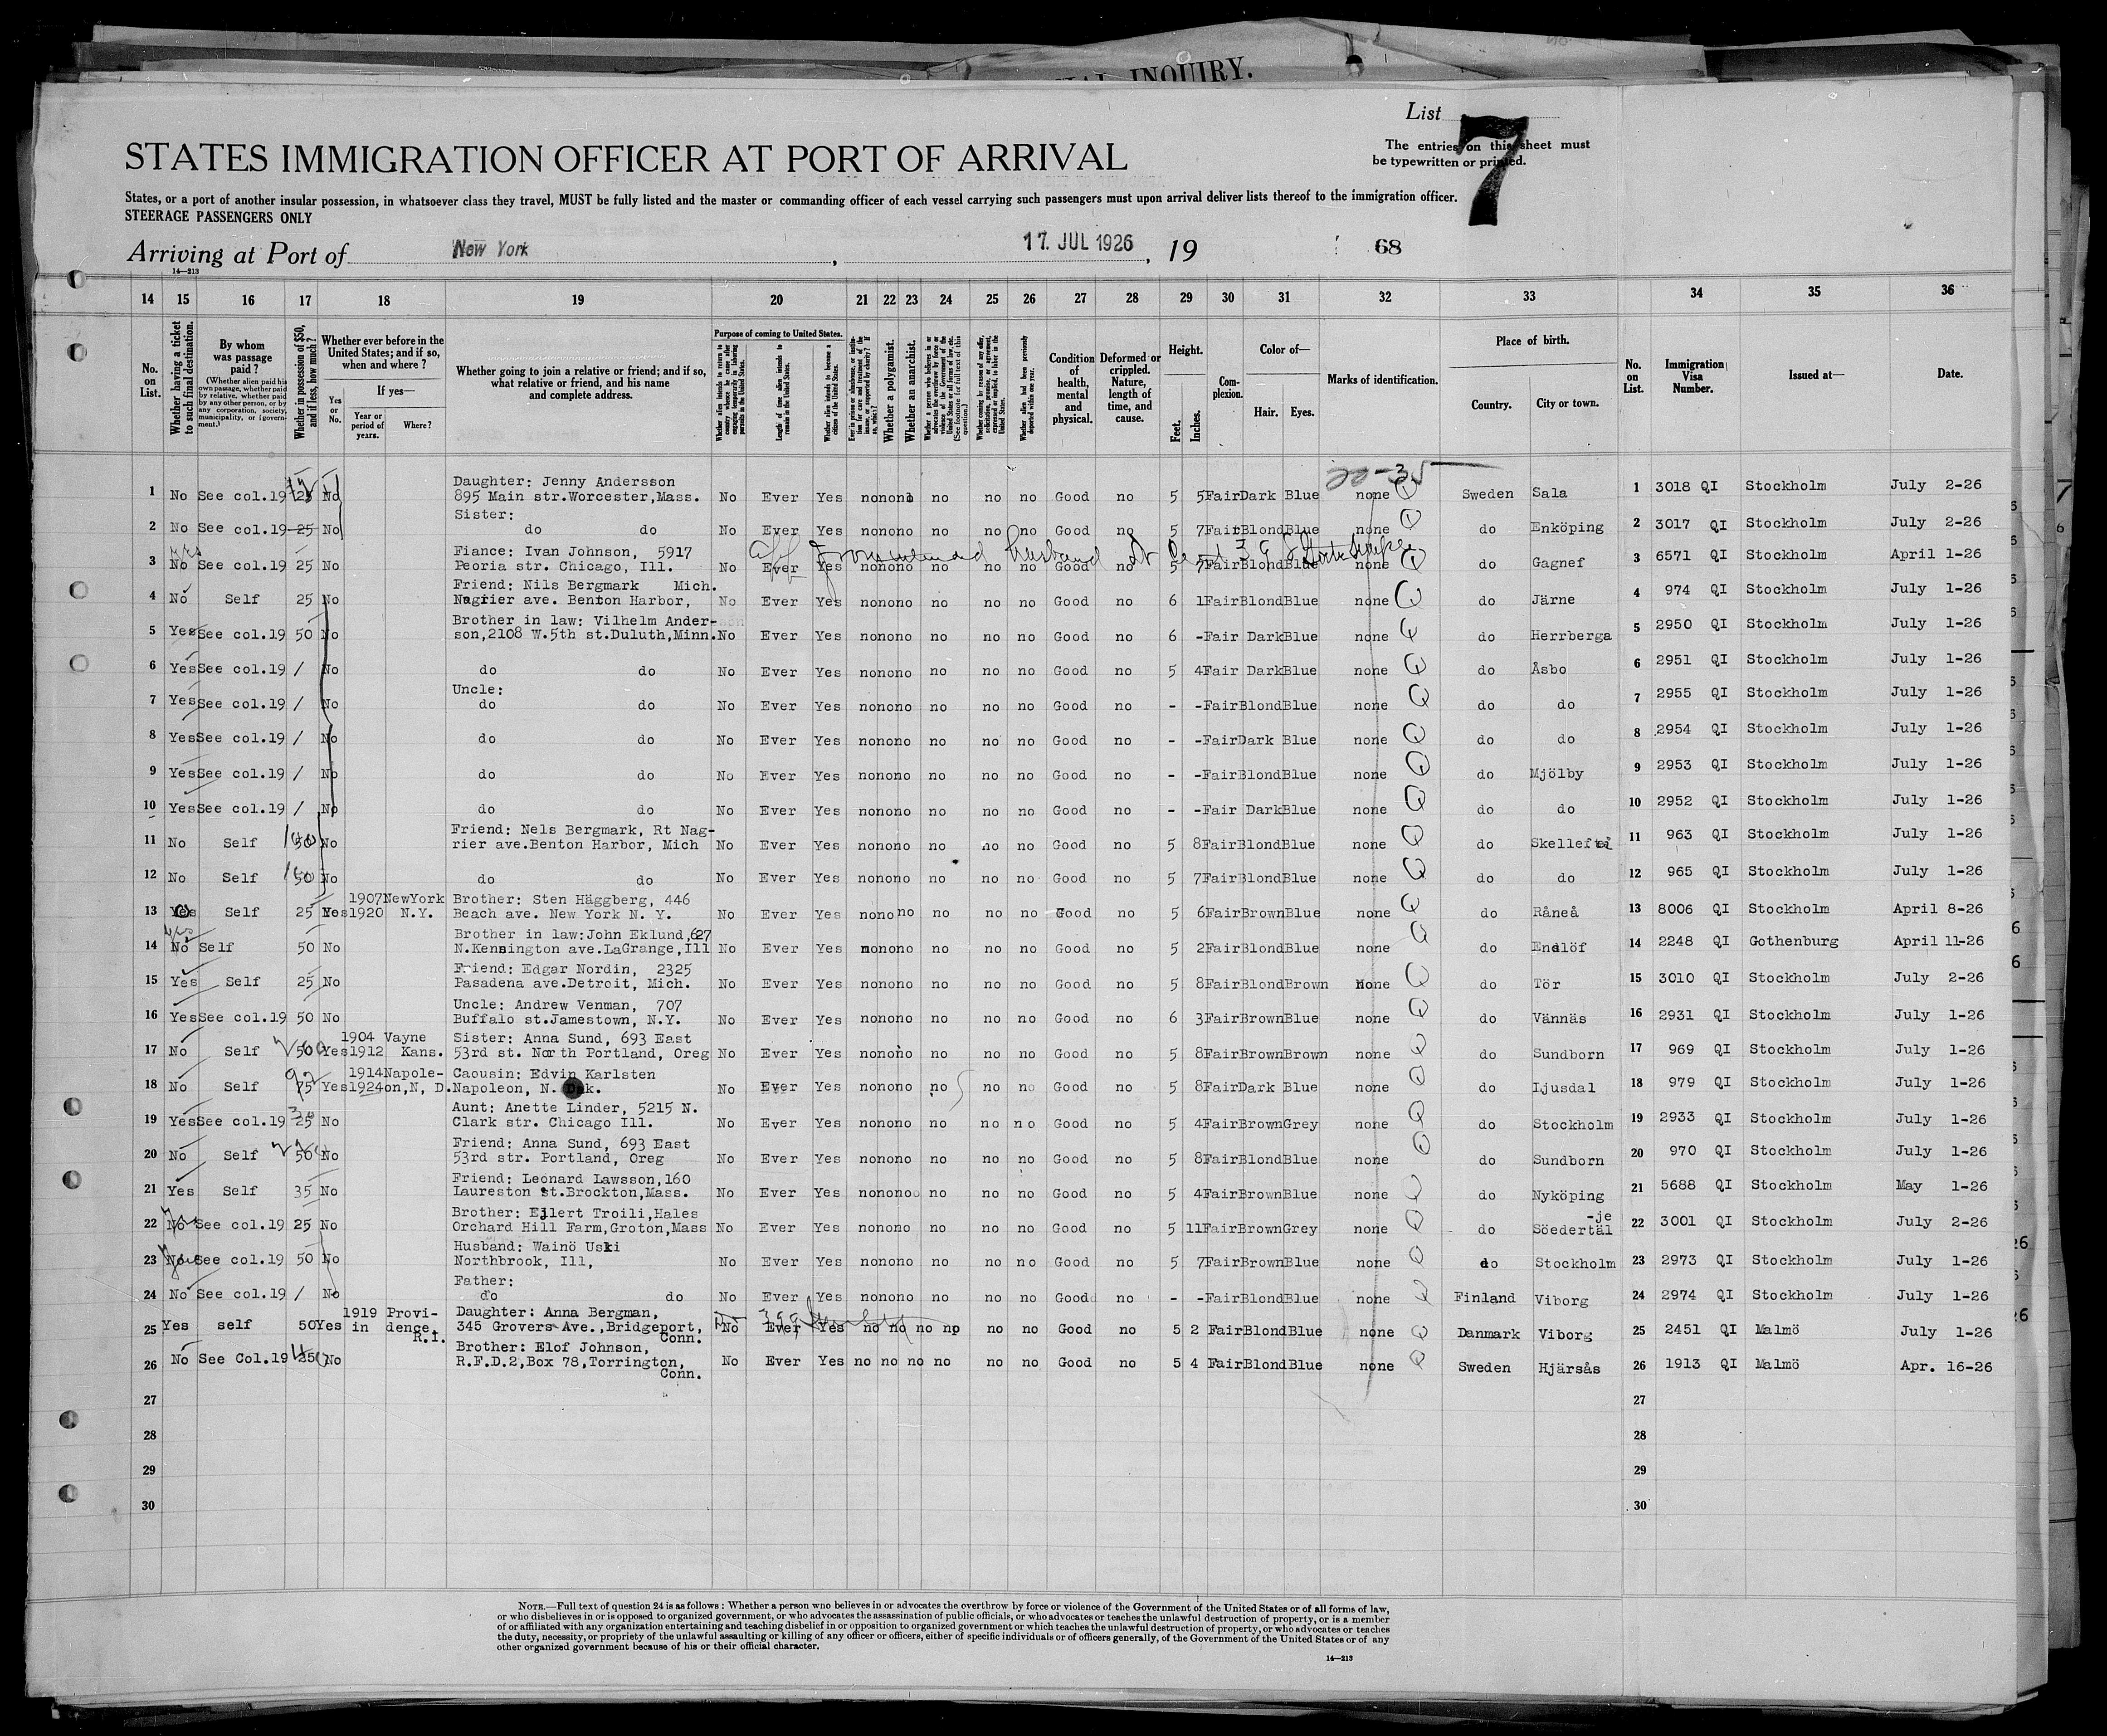 AL INQUIRY.
List 7
The entries on this sheet must
be typewritten or printed.
STATES IMMIGRATION OFFICER AT PORT OF ARRIVAL
States, or a port of another insular possession, in whatsoever class they travel, MUST be fully listed and the master or commanding officer of each vessel carrying such passengers must upon arrival deliver lists thereof to the immigration officer.
STEERAGE PASSENGERS ONLY
Arriving at Port of New York, 17. JUL 1926, 19 68
14—213
14 15 16 17 18 19 20 21 22 23 24 25 26 27 28 29 30 31 32 33 34 35 36
No. on List.
Whether having a ticket to such final destination.
By whom was passage paid?
(Whether alien paid his own passage, whether paid by relative, whether paid by any other person, or by any corporation, society, municipality, or government.)
Whether in possession of $50, and if less, how much?
Whether ever before in the United States; and if so, when and where?
If yes—
Yes or No.
Year or period of years.
Where?
Whether going to join a relative or friend; and if so, what relative or friend, and his name and complete address.
Purpose of coming to United States.
Whether alien intends to return to country whence he came after engaging temporarily in laboring pursuits in the United States.
Length of time alien intends to remain in the United States.
Whether alien intends to become a citizen of the United States.
Whether a polygamist.
Whether an anarchist.
Condition of health, mental and physical.
Deformed or crippled. Nature, length of time, and cause.
Height.
Feet.
Inches.
Complexion.
Color of—
Hair.
Eyes.
Marks of identification.
Place of birth.
Country.
City or town.
No. on List.
Immigration Visa Number.
Issued at—
Date.
20-35
1 No See col.19 25 No Daughter: Jenny Andersson
895 Main str.Worcester,Mass. No Ever Yes no no no no no no Good no 5 5 Fair Dark Blue none Sweden Sala 1 3018 QI Stockholm July 2-26
Sister:
2 No See col.19 25 No do do No Ever Yes no no no no no no Good no 5 7 Fair Blond Blue none do Enköping 2 3017 QI Stockholm July 2-26
3 No See col.19 25 No Fiance: Ivan Johnson, 5917
Peoria str. Chicago, Ill. No Ever Yes no no no no no no Good no 5 7 Fair Blond Blue none do Gagnef 3 6571 QI Stockholm April 1-26
4 No Self 25 No Friend: Nils Bergmark Mich.
Nagrier ave. Benton Harbor, No Ever Yes no no no no no no Good no 6 1 Fair Blond Blue none do Järne 4 974 QI Stockholm July 1-26
5 Yes See col.19 50 No Brother in law: Vilhelm Ander-
son,2108 W.5th st.Duluth,Minn. No Ever Yes no no no no no no Good no 6 - Fair Dark Blue none do Herrberga 5 2950 QI Stockholm July 1-26
6 Yes See col.19 / No do do No Ever Yes no no no no no no Good no 5 4 Fair Dark Blue none do Åsbo 6 2951 QI Stockholm July 1-26
Uncle:
7 Yes See col.19 / No do do No Ever Yes no no no no no no Good no - - Fair Blond Blue none do do 7 2955 QI Stockholm July 1-26
8 Yes See col.19 / No do do No Ever Yes no no no no no no Good no - - Fair Dark Blue none do do 8 2954 QI Stockholm July 1-26
9 Yes See col.19 / No do do No Ever Yes no no no no no no Good no - - Fair Blond Blue none do Mjölby 9 2953 QI Stockholm July 1-26
10 Yes See col.19 / No do do No Ever Yes no no no no no no Good no - - Fair Dark Blue none do do 10 2952 QI Stockholm July 1-26
11 No Self 50 No Friend: Nels Bergmark, Rt Nag-
rier ave.Benton Harbor, Mich No Ever Yes no no no no no no Good no 5 8 Fair Blond Blue none do Skellefteå 11 963 QI Stockholm July 1-26
12 No Self 50 No do do No Ever Yes no no no no no no Good no 5 7 Fair Blond Blue none do do 12 965 QI Stockholm July 1-26
1907 NewYork Brother: Sten Häggberg, 446
13 Yes Self 25 Yes 1920 N.Y. Beach ave. New York N. Y. No Ever Yes no no no no no no Good no 5 6 Fair Brown Blue none do Råneå 13 8006 QI Stockholm April 8-26
yes
14 No Self 50 No Brother in law:John Eklund,627
N.Kensington ave.LaGrange,Ill No Ever Yes no no no no no no Good no 5 2 Fair Blond Blue none do Enslöf 14 2248 QI Gothenburg April 11-26
15 Yes Self 25 No Friend: Edgar Nordin, 2325
Pasadena ave.Detroit, Mich. No Ever Yes no no no no no no Good no 5 8 Fair Blond Brown None do Tör 15 3010 QI Stockholm July 2-26
16 Yes See col.19 50 No Uncle: Andrew Venman, 707
Buffalo st.Jamestown, N.Y. No Ever Yes no no no no no no Good no 6 3 Fair Brown Blue none do Vännäs 16 2931 QI Stockholm July 1-26
1904 Vayne Sister: Anna Sund, 693 East
17 No Self 50 Yes 1912 Kans. 53rd st. North Portland, Oreg No Ever Yes no no no no no no Good no 5 8 Fair Brown Brown none do Sundborn 17 969 QI Stockholm July 1-26
1914 Napole- Caousin: Edvin Karlsten
18 No Self 75 Yes 1924 on,N, D. Napoleon, N. Dak. No Ever Yes no no no no no no Good no 5 8 Fair Dark Blue none do Ljusdal 18 979 QI Stockholm July 1-26
19 Yes See col.19 25 No Aunt: Anette Linder, 5215 N.
Clark str. Chicago Ill. No Ever Yes no no no no no no Good no 5 4 Fair Brown Grey none do Stockholm 19 2933 QI Stockholm July 1-26
20 No Self 50 No Friend: Anna Sund, 693 East
53rd str. Portland, Oreg No Ever Yes no no no no no no Good no 5 8 Fair Blond Blue none do Sundborn 20 970 QI Stockholm July 1-26
21 Yes Self 35 No Friend: Leonard Lawsson,160
Laureston st.Brockton,Mass. No Ever Yes no no no no no no Good no 5 4 Fair Brown Blue none do Nyköping 21 5688 QI Stockholm May 1-26
22 No See col.19 25 No Brother: Ejlert Troili,Hales
Orchard Hill Farm,Groton,Mass No Ever Yes no no no no no no Good no 5 11 Fair Brown Grey none do Söedertäl-je 22 3001 QI Stockholm July 2-26
23 See col.19 50 No Husband: Wainö Uski
Northbrook, Ill, No Ever Yes no no no no no no Good no 5 7 Fair Brown Blue none do Stockholm 23 2973 QI Stockholm July 1-26
Father:
24 No See col.19 / No do do No Ever Yes no no no no no no Good no - - Fair Blond Blue none Finland Viborg 24 2974 QI Stockholm July 1-26
1919 Provi- Daughter: Anna Bergman,
25 Yes self 50 Yes in dence, R.I. 345 Grovers Ave.,Bridgeport, Conn. No Ever Yes no no no no no no Good no 5 2 Fair Blond Blue none Danmark Viborg 25 2451 QI Malmö July 1-26
26 No See Col.19 25 No Brother: Elof Johnson,
R.F.D.2,Box 78,Torrington, Conn. No Ever Yes no no no no no no Good no 5 4 Fair Blond Blue none Sweden Hjärsås 26 1913 QI Malmö Apr. 16-26
27 27
28 28
29 29
30 30
NOTE.—Full text of question 24 is as follows: Whether a person who believes in or advocates the overthrow by force or violence of the Government of the United States or of all forms of law,
or who disbelieves in or is opposed to organized government, or who advocates the assassination of public officials, or who advocates or teaches the unlawful destruction of property, or is a member
of or affiliated with any organization entertaining and teaching disbelief in or opposition to organized government or which teaches the unlawful destruction of property, or who advocates or teaches
the duty, necessity, or propriety of the unlawful assaulting or killing of any officer or officers, either of specific individuals or of officers generally, of the Government of the United States or of any
other organized government because of his or their official character.
14—213